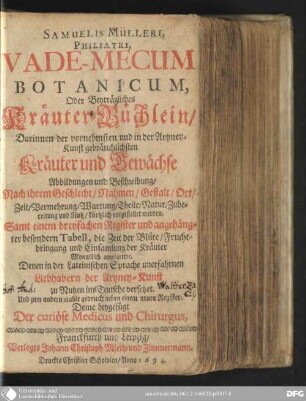 SAMUELIS MÜLLERI,
PHILIATRI,
VADE-MECUM
BOTANICUM,
Oder Beyträgliches
Kräuter-Büchlein/
Darinnen der vornehmsten und in der Artzney-
Kunst gebräuchlichsten
Kräuter und Gewächse
Abbildungen und Beschreibung/
Nach ihrem Geschlecht/ Nahmen/ Gestalt/ Ort/
Zeit/ Vermehrung/ Wartung/ Theile/ Natur/ Zube-
reitung und Nutz/ kürtzlich vorgestellet werden.
Samt einem dreyfachen Register und angehäng-
ter besondern Tabell, die Zeit der Blüte/ Frucht-
bringung und Einsamlung der Kräuter
Monatlich anzeigende.
Denen in der Lateinischen Sprache unerfahrnen
Liebhabern der Artzney-Kunst
zu Nutzen ins Teutsche versetzet.
Und zum andern mahle gedruckt nebst einem neuen Register.
Deme beygefügt
Der curiöse Medicus und Chirurgus,
Franckfurth und Leipzig/
Verlegts Johann Christoph Mieth und Zimmermann.
Druckts Christian Scholvien/ Anno 1694.